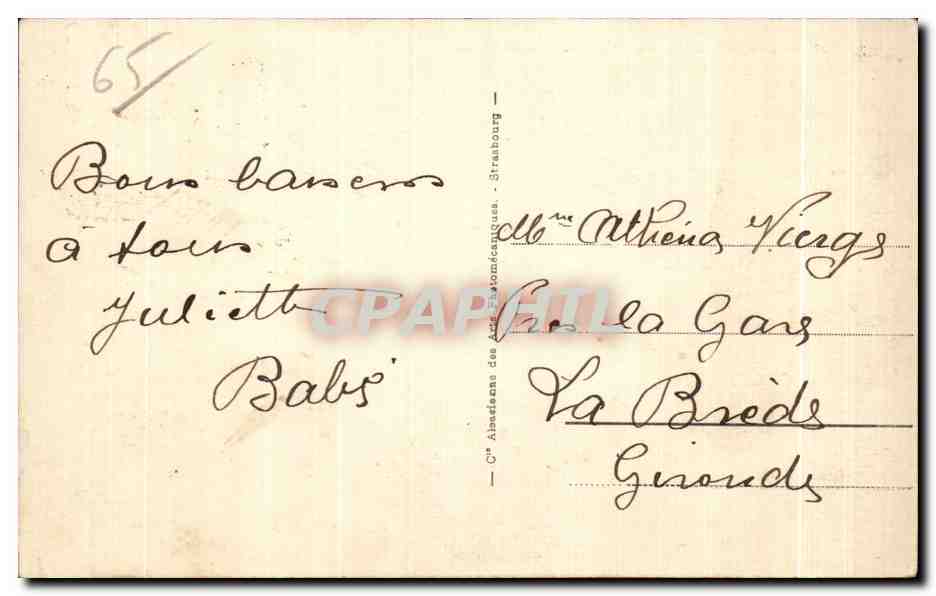 65
Bons baisers
à tous
Juliette
Babé
— Cie Alsacienne des Arts Photomécaniques. - Strasbourg —
Mme Athéna Vierge
Près la Gare
La Brède
Gironde
CPAPHIL